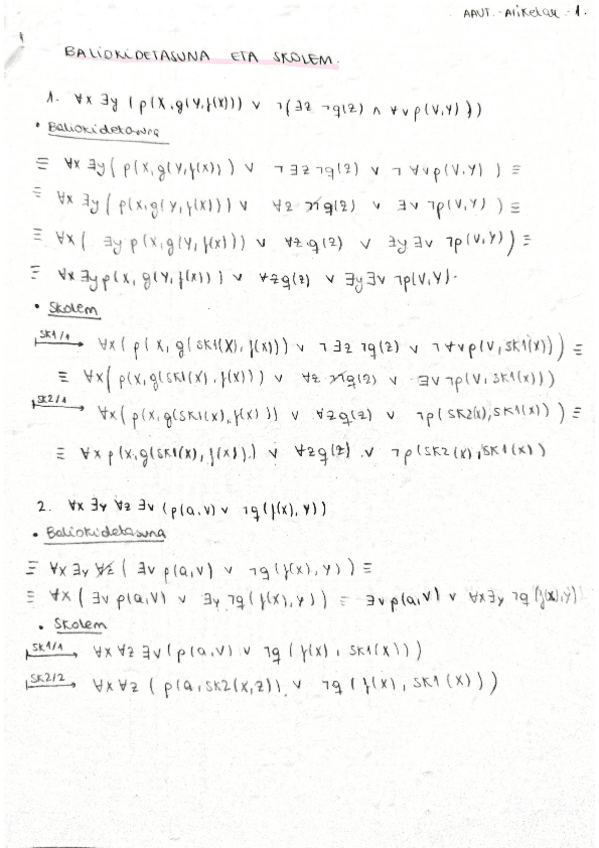 AAUT. - Ariketak - 1.
BALIOKIDETASUNA ETA SKOLEM.
1. ∀x ∃y (p(x,g(y,f(x))) ∨ ¬(∃z ¬q(z) ∧ ∀v p(v,y)))
• Baliokidetasuna
≡ ∀x ∃y (p(x,g(y,f(x))) ∨ ¬∃z ¬q(z) ∨ ¬∀v p(v,y)) ≡
≡ ∀x ∃y (p(x,g(y,f(x))) ∨ ∀z q(z) ∨ ∃v ¬p(v,y)) ≡
≡ ∀x (∃y p(x,g(y,f(x))) ∨ ∀z q(z) ∨ ∃y ∃v ¬p(v,y)) ≡
≡ ∀x ∃y p(x,g(y,f(x))) ∨ ∀z q(z) ∨ ∃y ∃v ¬p(v,y).
• Skolem
SK1/1 ∀x (p(x,g(sk1(x),f(x))) ∨ ¬∃z ¬q(z) ∨ ¬∀v p(v,sk1(x))) ≡
≡ ∀x (p(x,g(sk1(x),f(x))) ∨ ∀z q(z) ∨ ∃v ¬p(v,sk1(x)))
SK2/1 ∀x (p(x,g(sk1(x),f(x))) ∨ ∀z q(z) ∨ ¬p(sk2(x),sk1(x))) ≡
≡ ∀x p(x,g(sk1(x),f(x))) ∨ ∀z q(z) ∨ ¬p(sk2(x),sk1(x))
2. ∀x ∃y ∀z ∃v (p(a,v) ∨ ¬q(f(x),y))
• Baliokidetasuna
≡ ∀x ∃y ∀z (∃v p(a,v) ∨ ¬q(f(x),y)) ≡
≡ ∀x (∃v p(a,v) ∨ ∃y ¬q(f(x),y)) ≡ ∃v p(a,v) ∨ ∀x ∃y ¬q(f(x),y)
• Skolem
SK1/1 ∀x ∀z ∃v (p(a,v) ∨ ¬q(f(x),sk1(x)))
SK2/2 ∀x ∀z (p(a,sk2(x,z)) ∨ ¬q(f(x),sk1(x)))